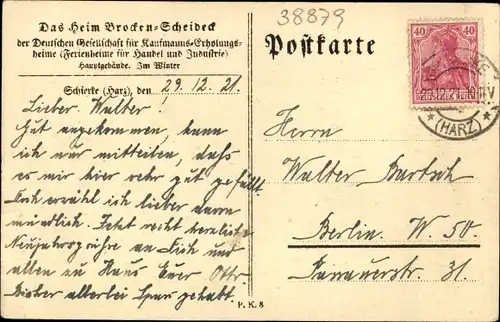 38879
Das Heim Brocken-Scheideck
der Deutschen Gesellschaft für Kaufmanns-Erholungs-
heime (Ferienheime für Handel und Industrie)
Hauptgebäude. Im Winter
Schierke (Harz), den 29. 12. 21.
Lieber Walter!
Gut angekommen, kann
ich nur mitteilen, dass
es mir hier sehr gut gefällt.
Dich erzähl ich lieber dann
mündlich. Jetzt recht herzliche
Neujahrsgrüße an Dich und
allen zu Haus Euer Otto.
Bisher allerlei Spass gehabt.
P. K. 8
Postkarte
40 40
DEUTSCHES REICH
29.12.21. 10-11 V
* (HARZ) *
Herrn
Walter Bartsch
Berlin W. 50.
Passauerstr. 31.